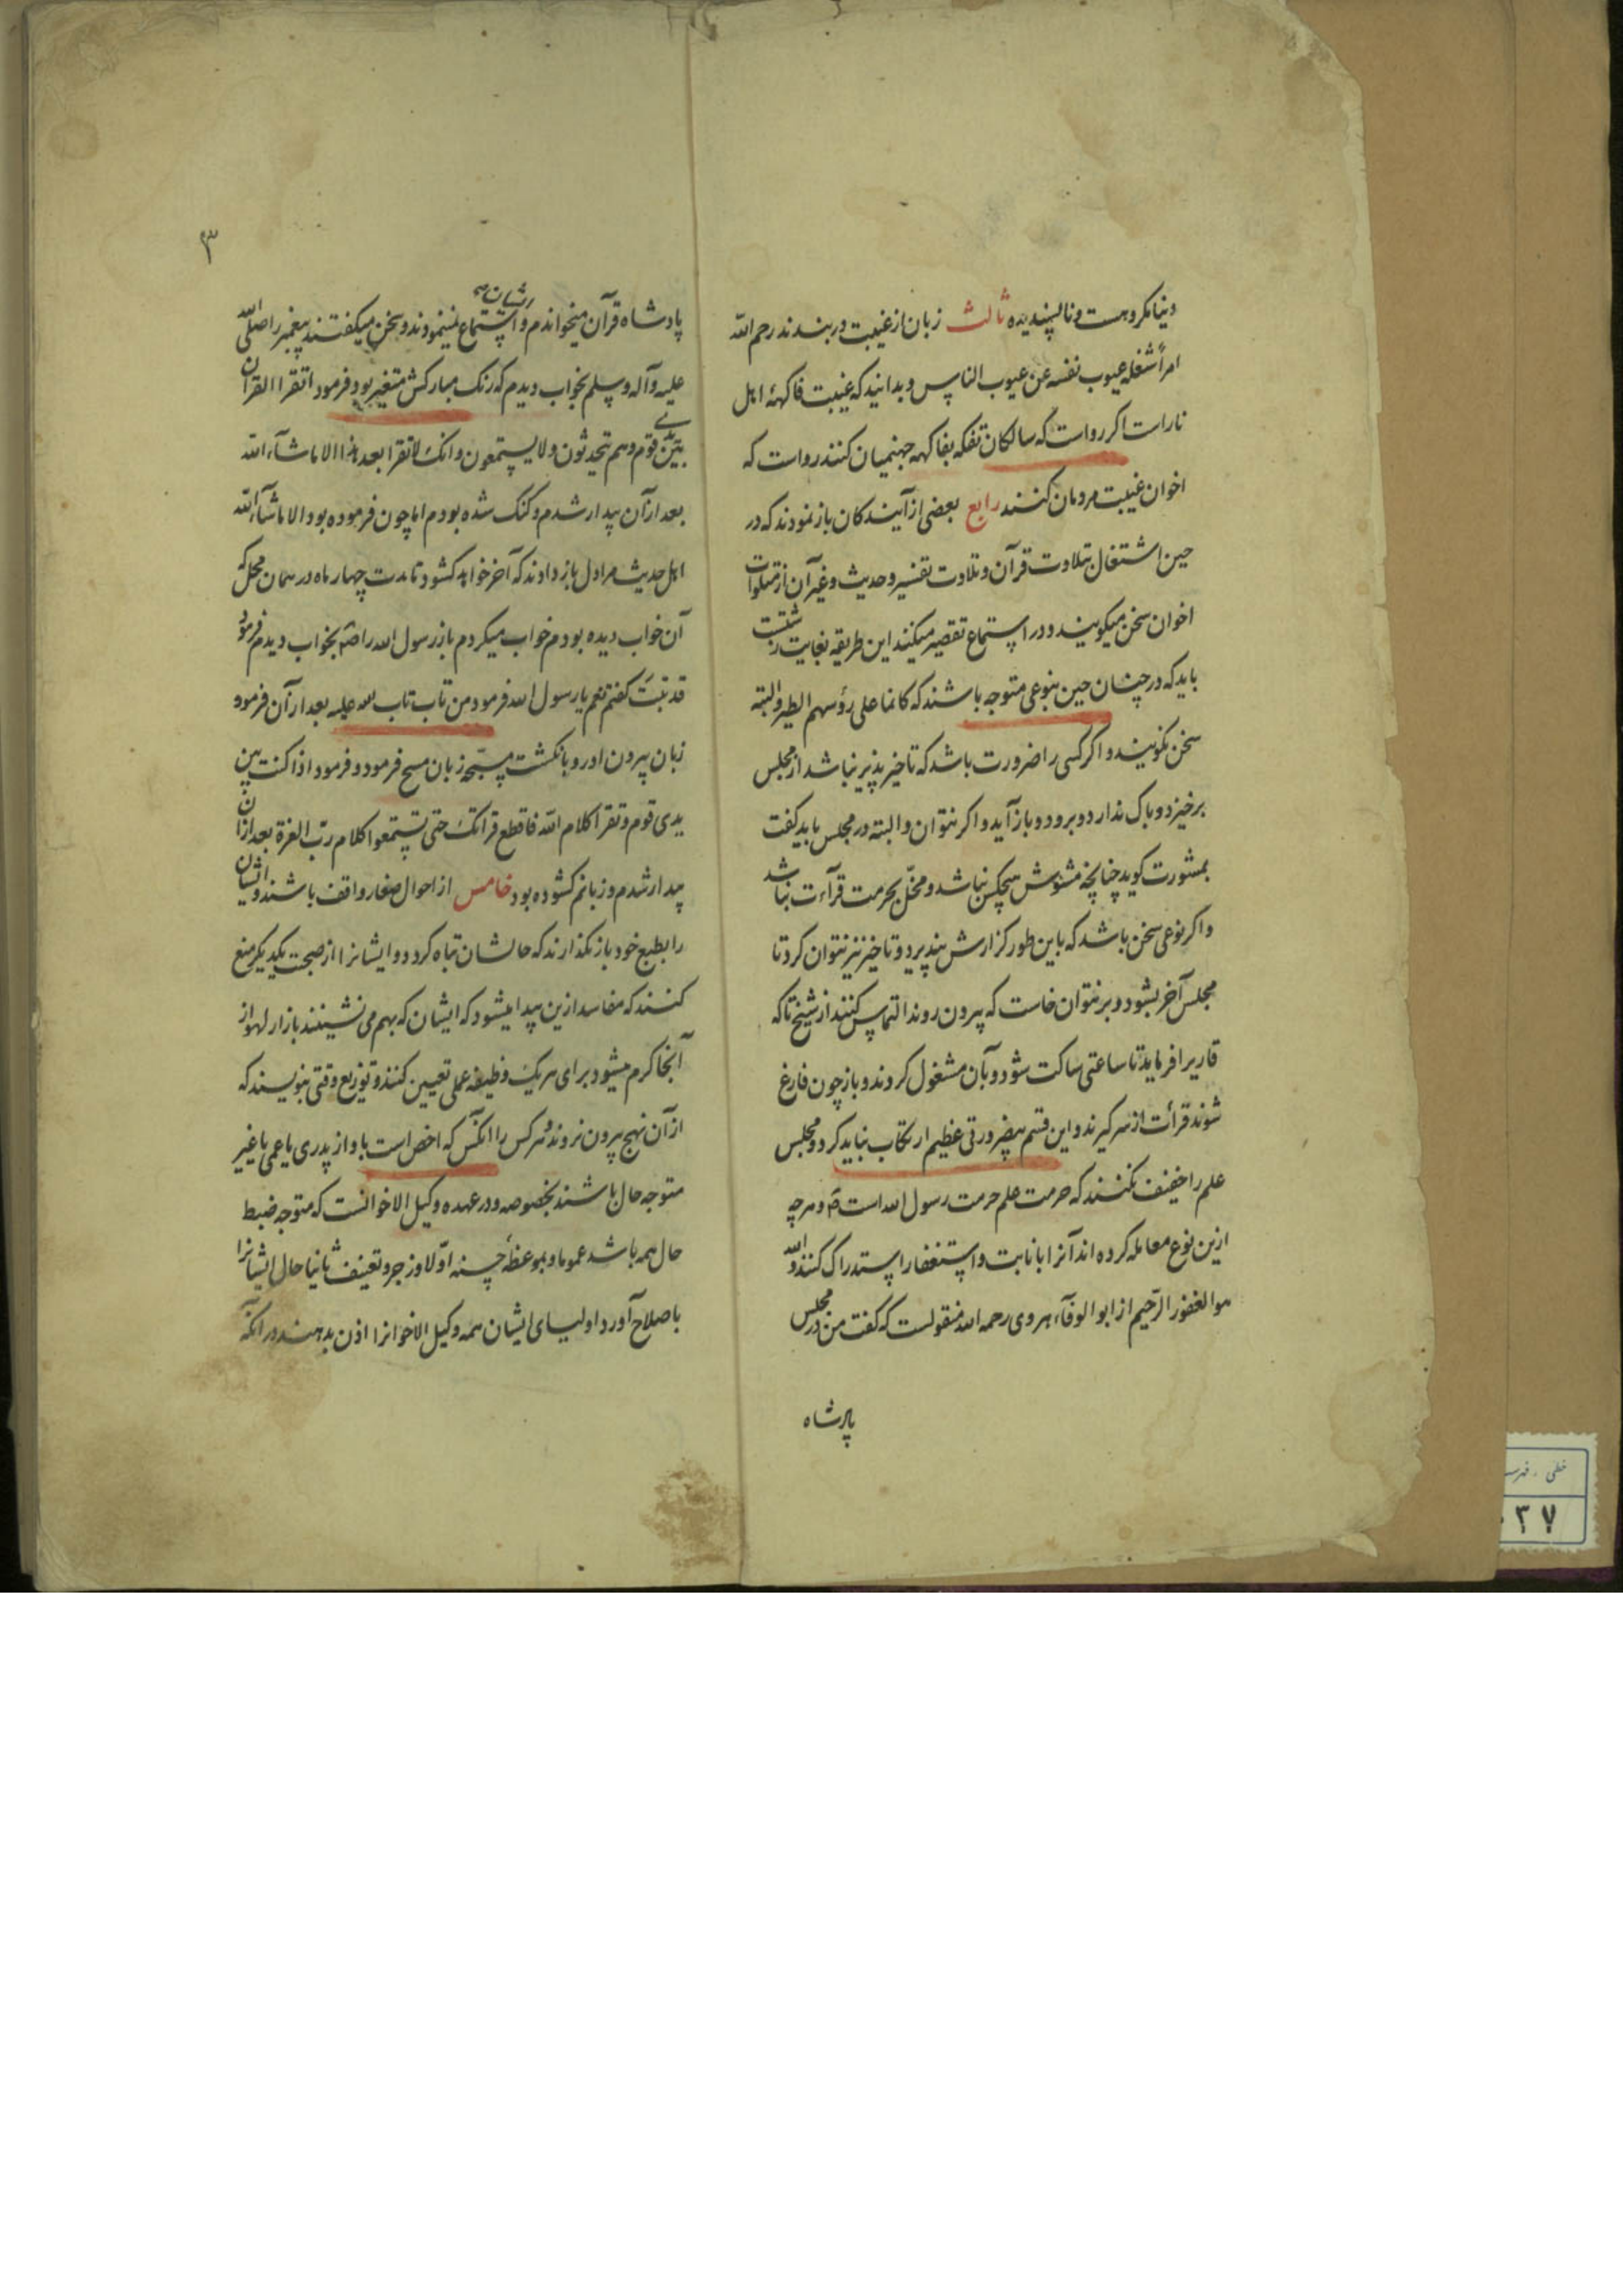 دنیا مکروهست و ناپسندیده ثالث زبان از غیبت دربندند رحم الله
امرأ شغله عیوب نفسه عن عیوب الناس و بدانید که غیبت فاکههٔ اهل
نارات اکر رواست که سالکان تفکه بفاکهه جهنمیان کنند رواست که
اخوان غیبت مردمان کنند رابع بعضی از آیندکان باز نمودند که در
حین اشتغال بتلاوت قرآن و تلاوت تفسیر و حدیث و غیر آن از متلوات
اخوان سخن میکویند و در استماع تقصیر میکنند این طریقه بغایت زشتست
باید که در چنان حین بنوعی متوجه باشند که کانما علی رؤسهم الطیر و البته
سخن نکویند و اکر کسی را ضرورت باشد که تاخیرپذیر نباشد از مجلس
برخیزد و باک ندارد و برود و باز آید و اکر نتوان و البته در مجلس باید کفت
بمشورت کوید چنانچه مشوش هیچکس نباشد و مخل بحرمت قرآءت نباشد
و اکر نوعی سخن باشد که باین طور کزارش نپذیرد و تاخیر نیز نتوان کرد تا
مجلس آخر بشود و برنتوان خاست که بیرون روند التماس کنند از شیخ تا که
قاریرا فرماید تا ساعتی ساکت شود و بآن مشغول کردند و باز چون فارغ
شوند قرأت از سر کیرند و این قسم بیضرورتی عظیم ارتکاب نباید کرد و مجلس
علم را خفیف نکنند که حرمت علم حرمت رسول الله است و هرچه
ازین نوع معامله کرده اند آنرا بانابت و استغفار استدراک کنند والله
هو الغفور الرحیم از ابو الوفاء هروی رحمه الله منقولست که کفت من در مجلس
پادشاه
۳
پادشاه قرآن میخواندم و ایشان استماع نمینمودند و سخن میکفتند پیغمبر را صلی الله
علیه و آله و سلم بخواب دیدم که رنک مبارکش متغیر بود فرمود اتقرا القرآن
بین یدی قوم و هم یتحدثون و لا یستمعون و انک لا تقرا بعد هذا الا ما شآء الله
بعد از آن بیدار شدم و کنک شده بودم اما چون فرموده بود الا ما شآء الله
اهل حدیث مرا دل باز دادند که آخر خواهد کشود تا مدت چهار ماه در همان محل که
آن خواب دیده بودم خواب میکردم باز رسول الله را بخواب دیدم فرمود
قد تبت کفتم نعم یا رسول الله فرمود من تاب تاب الله علیه بعد از آن فرمود
زبان بیرون اور و بانکشت مسبحه زبان مسح فرمود و فرمود اذا کنت بین
یدی قوم و تقرا کلام الله فاقطع قراتک حتی یستمعوا کلام رب العزة بعد ازان
بیدار شدم و زبانم کشوده بود خامس از احوال صغار واقف باشند و ایشان
را بطبع خود باز نکذارند که حالشان تباه کردد و ایشانرا از صحبت یکدیکر منع
کنند که مفاسد ازین پیدا میشود که ایشان که بهم می نشینند بازار لهو از
آنجا کرم میشود برای هر یک وظیفه عملی تعیین کنند و توزیع وقتی بنویسند که
از آن نهج بیرون نروند و هر کس را آنکس که اخص است باو از پدری یا عمی یا غیر
متوجه حال باشند بخصوصه و در عهده وکیل الاخوانست که متوجه ضبط
حال همه باشد عموما و بموعظهٔ حسنه اولا و زجر و تعنیف ثانیا حال ایشانرا
باصلاح آورد اولیای ایشان همه وکیل الاخوانرا اذن بدهند در آنکه
خطی
۳۷